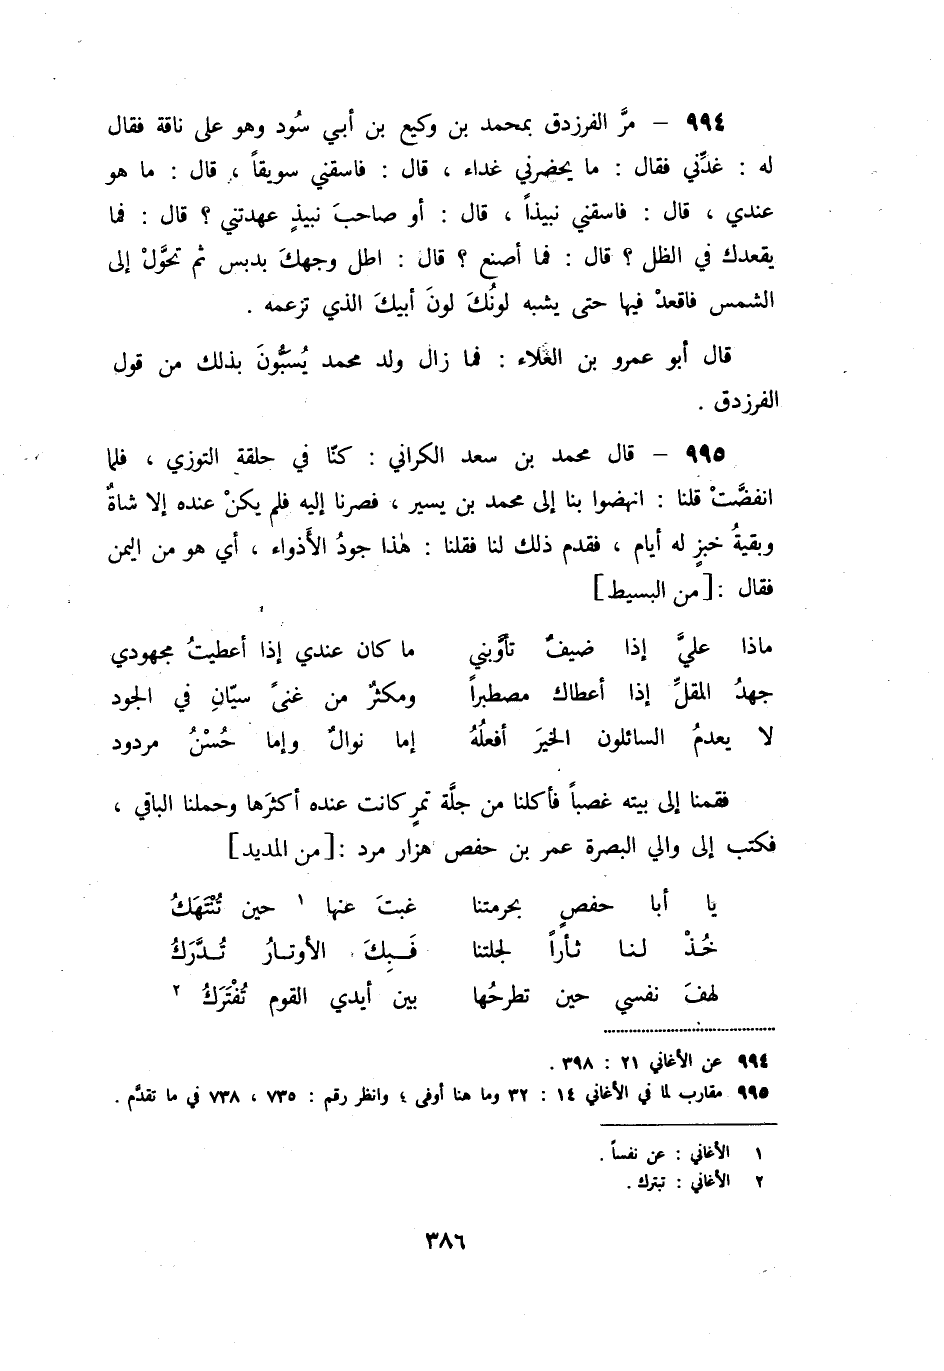 ٩٩٤ – مرَّ الفرزدق بمحمد بن وكيع بن أبي سُود وهو على ناقة فقال
له : غدِّني فقال : ما يحضرني غداء ، قال : فاسقني سويقاً ، قال : ما هو
عندي ، قال : فاسقني نبيذاً ، قال : أو صاحبَ نبيذٍ عهدتني ؟ قال : فما
يقعدك في الظل ؟ قال : فما أصنع ؟ قال : اطل وجهكَ بدبس ثم تحوَّلْ إلى
الشمس فاقعدْ فيها حتى يشبه لونُكَ لونَ أبيكَ الذي تزعمه .
قال أبو عمرو بن العَلاء : فما زال ولد محمد يُسَبُّونَ بذلك من قول
الفرزدق .
٩٩٥ – قال محمد بن سعد الكراني : كنّا في حلقة التوزي ، فلما
انفضَّتْ قلنا : انهضوا بنا إلى محمد بن يسير ، فصرنا إليه فلم يكنْ عنده إلا شاةٌ
وبقيةُ خبزٍ له أيام ، فقدم ذلك لنا فقلنا : هٰذا جودُ الأَذواء ، أي هو من اليمن
فقال :[من البسيط]
ماذا عليَّ إذا ضيفٌ تأوَّبني ما كان عندي إذا أعطيتُ مجهودي
جهدُ المقلِّ إذا أعطاك مصطبراً ومكثرٌ من غنىً سيّانِ في الجود
لا يعدمُ السائلون الخيرَ أفعلُهُ إما نوالٌ وإما حُسْنُ مردود
فقمنا إلى بيته غصباً فأكلنا من جلَّة تمرٍ كانت عنده أكثرَها وحملنا الباقي ،
فكتب إلى والي البصرة عمر بن حفص هزار مرد :[من المديد]
يا أبا حفصٍ بحرمتنا غبتَ عنها ١ حين تُنْتَهَكُ
خُذْ لنا ثأراً لجلتنا فَبِكَ الأوتارُ تُدَّرَكُ
لهفَ نفسي حين تطرحُها بين أيدي القوم تُفْتَرَكُ ٢
٩٩٤ عن الأغاني ٢١ : ٣٩٨ .
٩٩٥ مقارب لما في الأغاني ١٤ : ٣٢ وما هنا أوفى ؛ وانظر رقم : ٧٣٥ ، ٧٣٨ في ما تقدَّم .
١ الأغاني : عن نفساً .
٢ الأغاني : تبترك .
٣٨٦